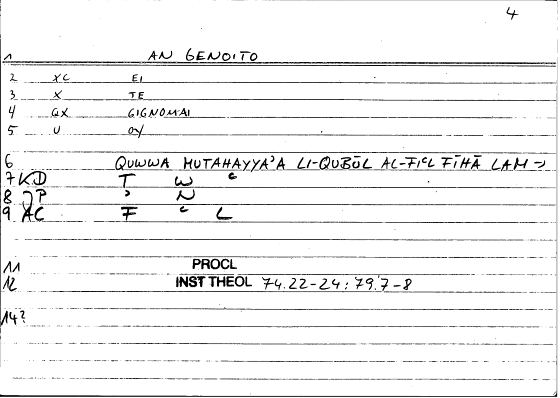 4
1 AN GENOITO
2 XC EI
3 X TE
4 GX GIGNOMAI
5 U OY
6 QUWWA MUTAHAYYAʾA LI-QUBŪL AL-FIʿL FĪHĀ LAM →
7 KD T W ʿ
8 JP ʾ N
9 AC F ʿ L
11 PROCL
12 INST THEOL 74.22-24 : 79.7-8
14?